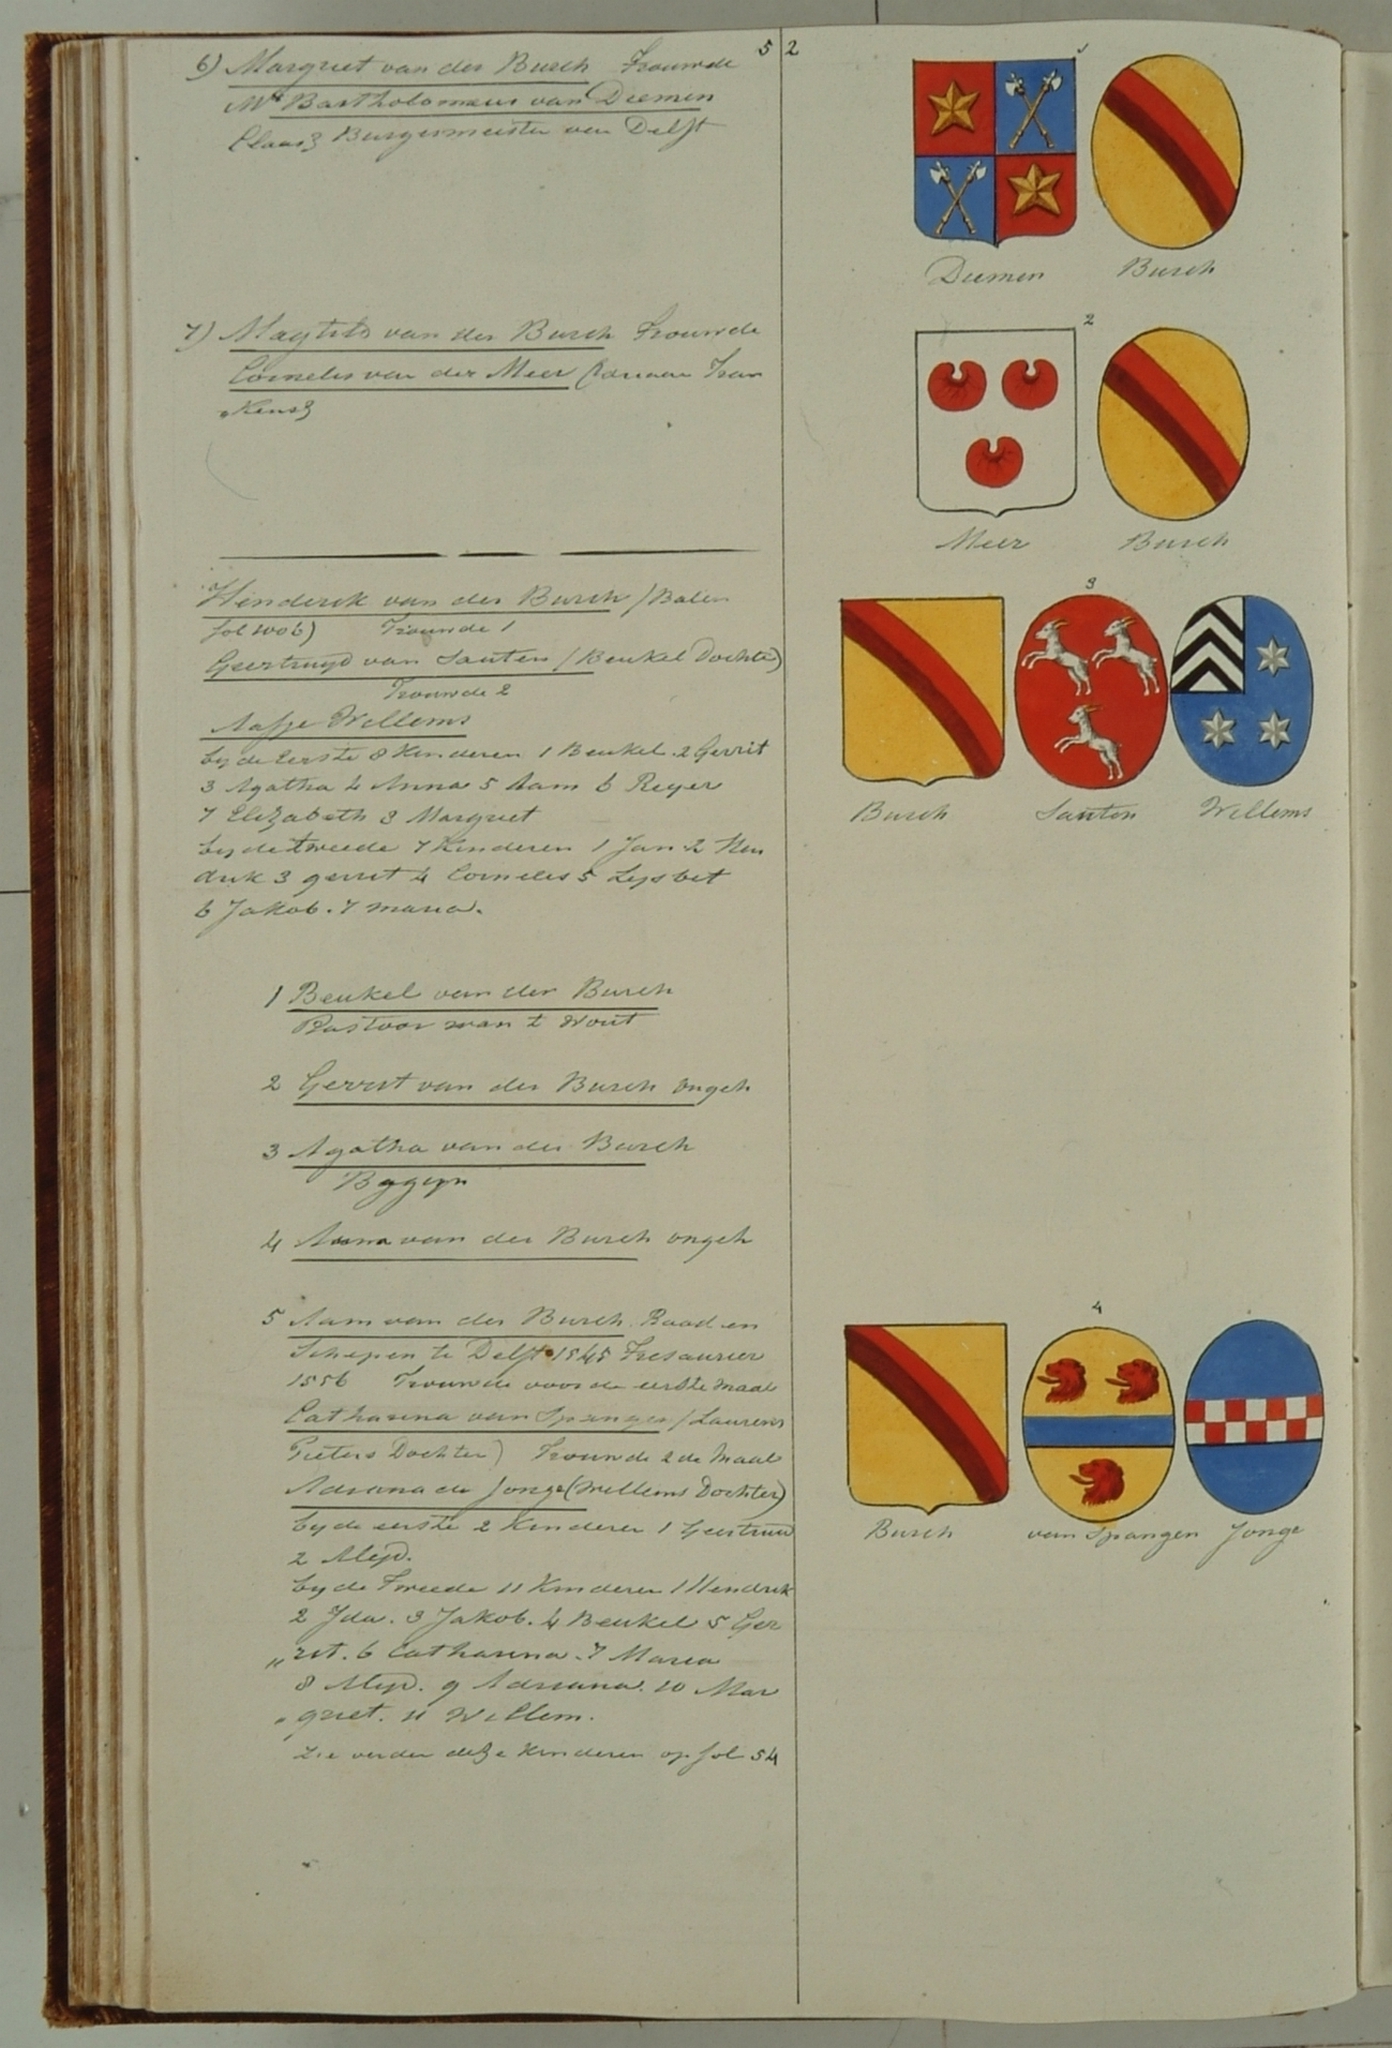 52
6) Margriet van der Burch Trouwde
Mr Bartholomeus van Diemen
Claasz Burgermeester van Delft
1
Diemen Burch
7) Magtild van der Burch Trouwde
Cornelis van der Meer (Adriaan Fran
„kensz
2
Meer Burch
Hinderik van der Burch /Balen
fol 1006) Trouwde 1
Geertruyd van Santen /Beukel Dochter)
Trouwde 2
Aafje Willems
by de Eerste 8 Kinderen 1 Beukel. 2 Gerrit
3 Agatha 4 Anna 5 Aam 6 Reyer
7 Elizabeth 8 Margriet
by de tweede 7 Kinderen 1 Jan 2 Hen
drik 3 gerrit 4 Cornelis 5 Lysbet
6 Jakob. 7 maria.
3
Burch Santen Willems
1 Beukel van der Burch
Pastoor van t Wout
2 Gerrit van der Burch ongeh
3 Agatha van der Burch
Baggyn
4 Anna van der Burch ongeh
5 Aam van der Burch. Raad en
Schepen te Delft 1545 Tresaurier
1556 Trouwde voor de eerste maal
Catharina van Spangen /Laurens
Pieters Dochter) Trouwde 2de Maal
Adriana de Jonge (Willems Dochter)
by de eerste 2 Kinderen 1 Geertruid
2 Alejd.
by de Tweede 11 Kinderen 1 Hendrik
2 Jda. 3 Jakob. 4 Beukel 5 Ger
„rit. 6 Catharina. 7 Maria
8 Alejd. 9 Adriana. 10 Mar
„griet. 11 Willem.
Zie verder deze Kinderen op fol 54
4
Burch van Spangen Jonge